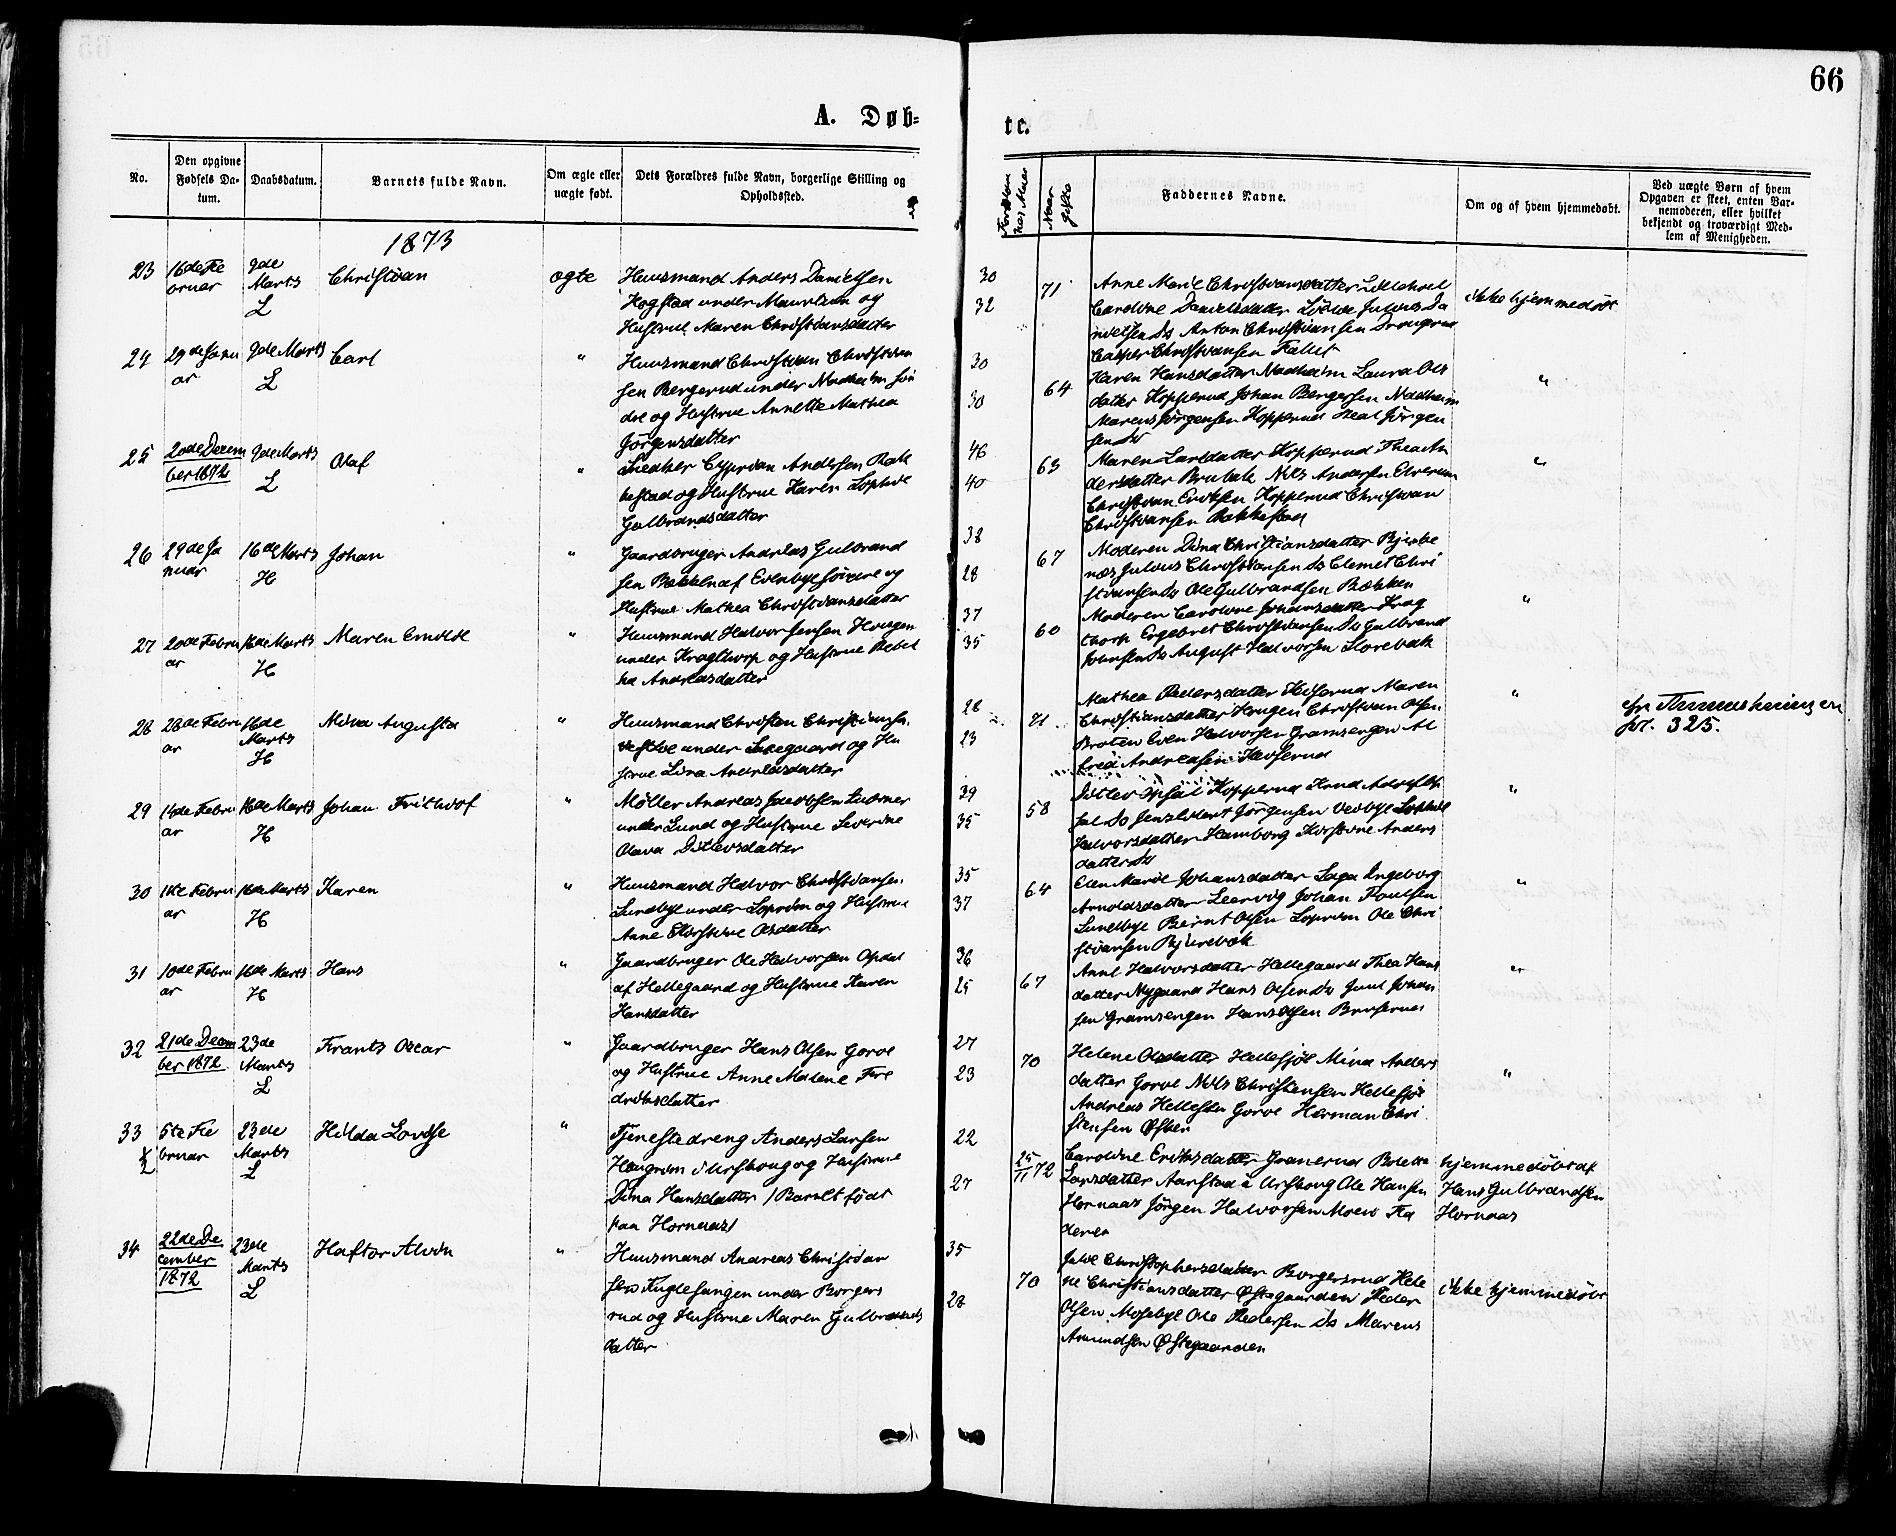 66
A. Døb-
te.
No.
Den opgivne
Fødsels Da-
tum.
Daabsdatum.
Barnets fulde Navn.
Om ægte eller
uægte født.
Dets Forældres fulde Navn, borgerlige Stilling og
Opholdssted.
Naar
gifte
Faddernes Navne.
Om og af hvem hjemmedøbt.
Ved uægte Børn af hvem
Opgaven er skeet, enten Bar-
nemoderen, eller hvilket
bekjendt og troværdigt Med-
lem af Menigheden.
1873
23
16de Fe
bruar
9de
Marts
L
Christian
ægte
Huusmand Anders Danielsen
Hagstad under
og
Hustrue Maren Christiansdatter
30
32
71
Anne Marie Christiansdatter
Caroline Danielsdatter Julius Da
nielsen Do Anton Christiansen
Casper Christiansen
ikke hjemmedøbt
24
29de Janu
ar
9de Marts
L
Carl
"
Huusmand Christian Christian
sen Bergerud under Nadheim Søn
dre og Hustrue Annette Mathea
Jørgensdatter
30
30
64
Karen Hansdatter Nadheim Laura Ols
datter Kopperud Johan Bergersen Nadheim
Marcus Jørgensen Kopperud Jørgen
sen Do
"
25
20de Decem
ber 1872
9de Marts
L
Olaf
"
Cyprian Andersen Bak
kestad og Hustrue Karen Sophie
Gulbrandsdatter
46
40
63
Maren Larsdatter Kopperud Thea An
dersdatter Brubak Nils Andersen
Christian Eriksen Kopperud Christian
Christiansen Bakkestad
"
26
29de Ja
nuar
16de Marts
H
Johan
"
Gaardbruger Andreas Gulbrand
sen Bækken af Evenbye og
Hustrue Mathea Christiansdatter
38
28
67
Moderen Dina Christiansdatter Bjerke
næs Julius Christiansen Do Clemet Chri
stiansen Do Ole Gulbrandsen Bækken
"
27
20de Febru
ar
16de Marts
H
Maren Emilie
"
Huusmand Halvor Jensen Haugen
under Kragtorp og Hustrue Rebek
ka Andreasdatter
37
35
60
Moderen Caroline Johansdatter Krag
thorp Engebret Christiansen Do Gulbrand
Johnsen Do August Halvorsen Storebak
28
28de Febru
ar
16de
Marts
H
Mina Augusta
"
Huusmand Christen Christiansen
under og Hu
strue Lina Andreasdatter
28
23
71
Mathea Pedersdatter Maren
Christiansdatter Haugen Christian Olsen
Braten Even Halvorsen Gramsengen Al
fred Andreasen
"
325.
29
14de Febru
ar
16de Marts
H
Johan Frithiof
"
Møller Andreas Jacobsen
under Lund og Hustrue Severine
Olava Ditlevsdatter
39
35
58
Ditlev Kopperud Knud
Do Jens Edvert Jørgensen Vedbye Sophie
Halvorsdatter Hamborg Kirstine Anders
datter Do
"
30
1ste Febru
ar
16de Marts
H
Karen
"
Huusmand Halvor Christiansen
Lundbye under Soprim og Hustrue
Anne Kirstine Olsdatter
35
37
64
Ellen Marie Johansdatter Ingeborg
Arnoldsdatter Leervig Johan Poulsen
Lundbye Bernt Olsen Soprim Ole Chri
stiansen Bjurebæk
"
31
10de Febru
ar
16de Marts
H
Hans
"
Gaardbruger Ole Halvorsen Opdal
af Hellegaard og Hustrue Karen
Hansdatter
36
25
67
Anne Halvorsdatter Hellegaard Thea Hans
datter Nygaard Hans Olsen Do Juul Johan
sen Gramsengen Hans Olsen
"
32
21de Decem
ber 1872
23de
Marts
L
Frants Oscar
"
Gaardbruger Hans Olsen Gorve
og Hustrue Anne Malene Fre
driksdatter
27
23
70
Helene Olsdatter Hellesjøe Mina Anders
datter Gorve Nils Christensen Hellesjøe
Andreas Gorve Herman Chri
stensen Østen
"
33
5te Fe
bruar
23de
Marts
L
Hilda Lovise
"
Tjenestedreng Anders Larsen
Haugrim i Urskoug og Hustrue
Dina Hansdatter / Barnet født
paa Hornaas/
22
27
25/11 72
Caroline Eriksdatter Granerud Bolette
Larsdatter Aarstad i Urskoug Ole Hansen
Hornaas Jørgen Halvorsen Moen Fa
deren
hjemmedøbt af
Hans Gulbrandsen
Hornaas
34
22de De
cember
1872
23de
Marts
L
Haftor Alvin
"
Huusmand Andreas Christian
sen Fuglesangen under Borgers
rud og Hustrue Maren Gulbrands
datter
35
28
70
Julie Christophersdatter Borgersrud Hele
ne Christiansdatter Østegaarden Peder
Olsen Mosebye Ole Pedersen Do Marcus
Amundsen Østegaarden
ikke hjemmedøbt